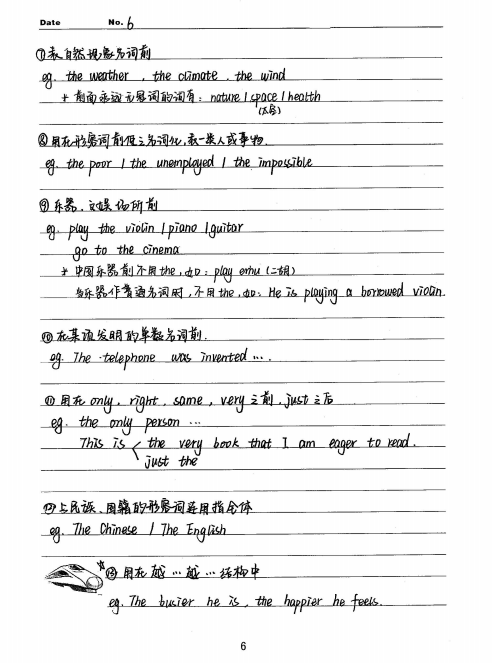 Date No. 6
⑦表自然现象名词前
eg. the weather , the climate . the wind
* 前面永远无冠词的词有: nature | space | health
(太空)
⑧用在形容词前使之名词化,表一类人或事物.
eg. the poor | the unemployed | the impossible
⑨乐器、文娱场所前
eg. play the violin | piano | guitar
go to the cinema
* 中国乐器前不用the,如: play erhu (二胡)
当乐器作普通名词时,不用the,如: He is playing a borrowed violin.
⑩在某项发明的单数名词前.
eg. The telephone was invented ….
⑪用在only, right, same, very之前, just之后
eg. the only person …
This is < the very book that I am eager to read.
just the
⑫与民族、国籍的形容词连用指全体
eg. The Chinese | The English
☆⑬用在越…越…结构中
eg. The busier he is, the happier he feels.
6